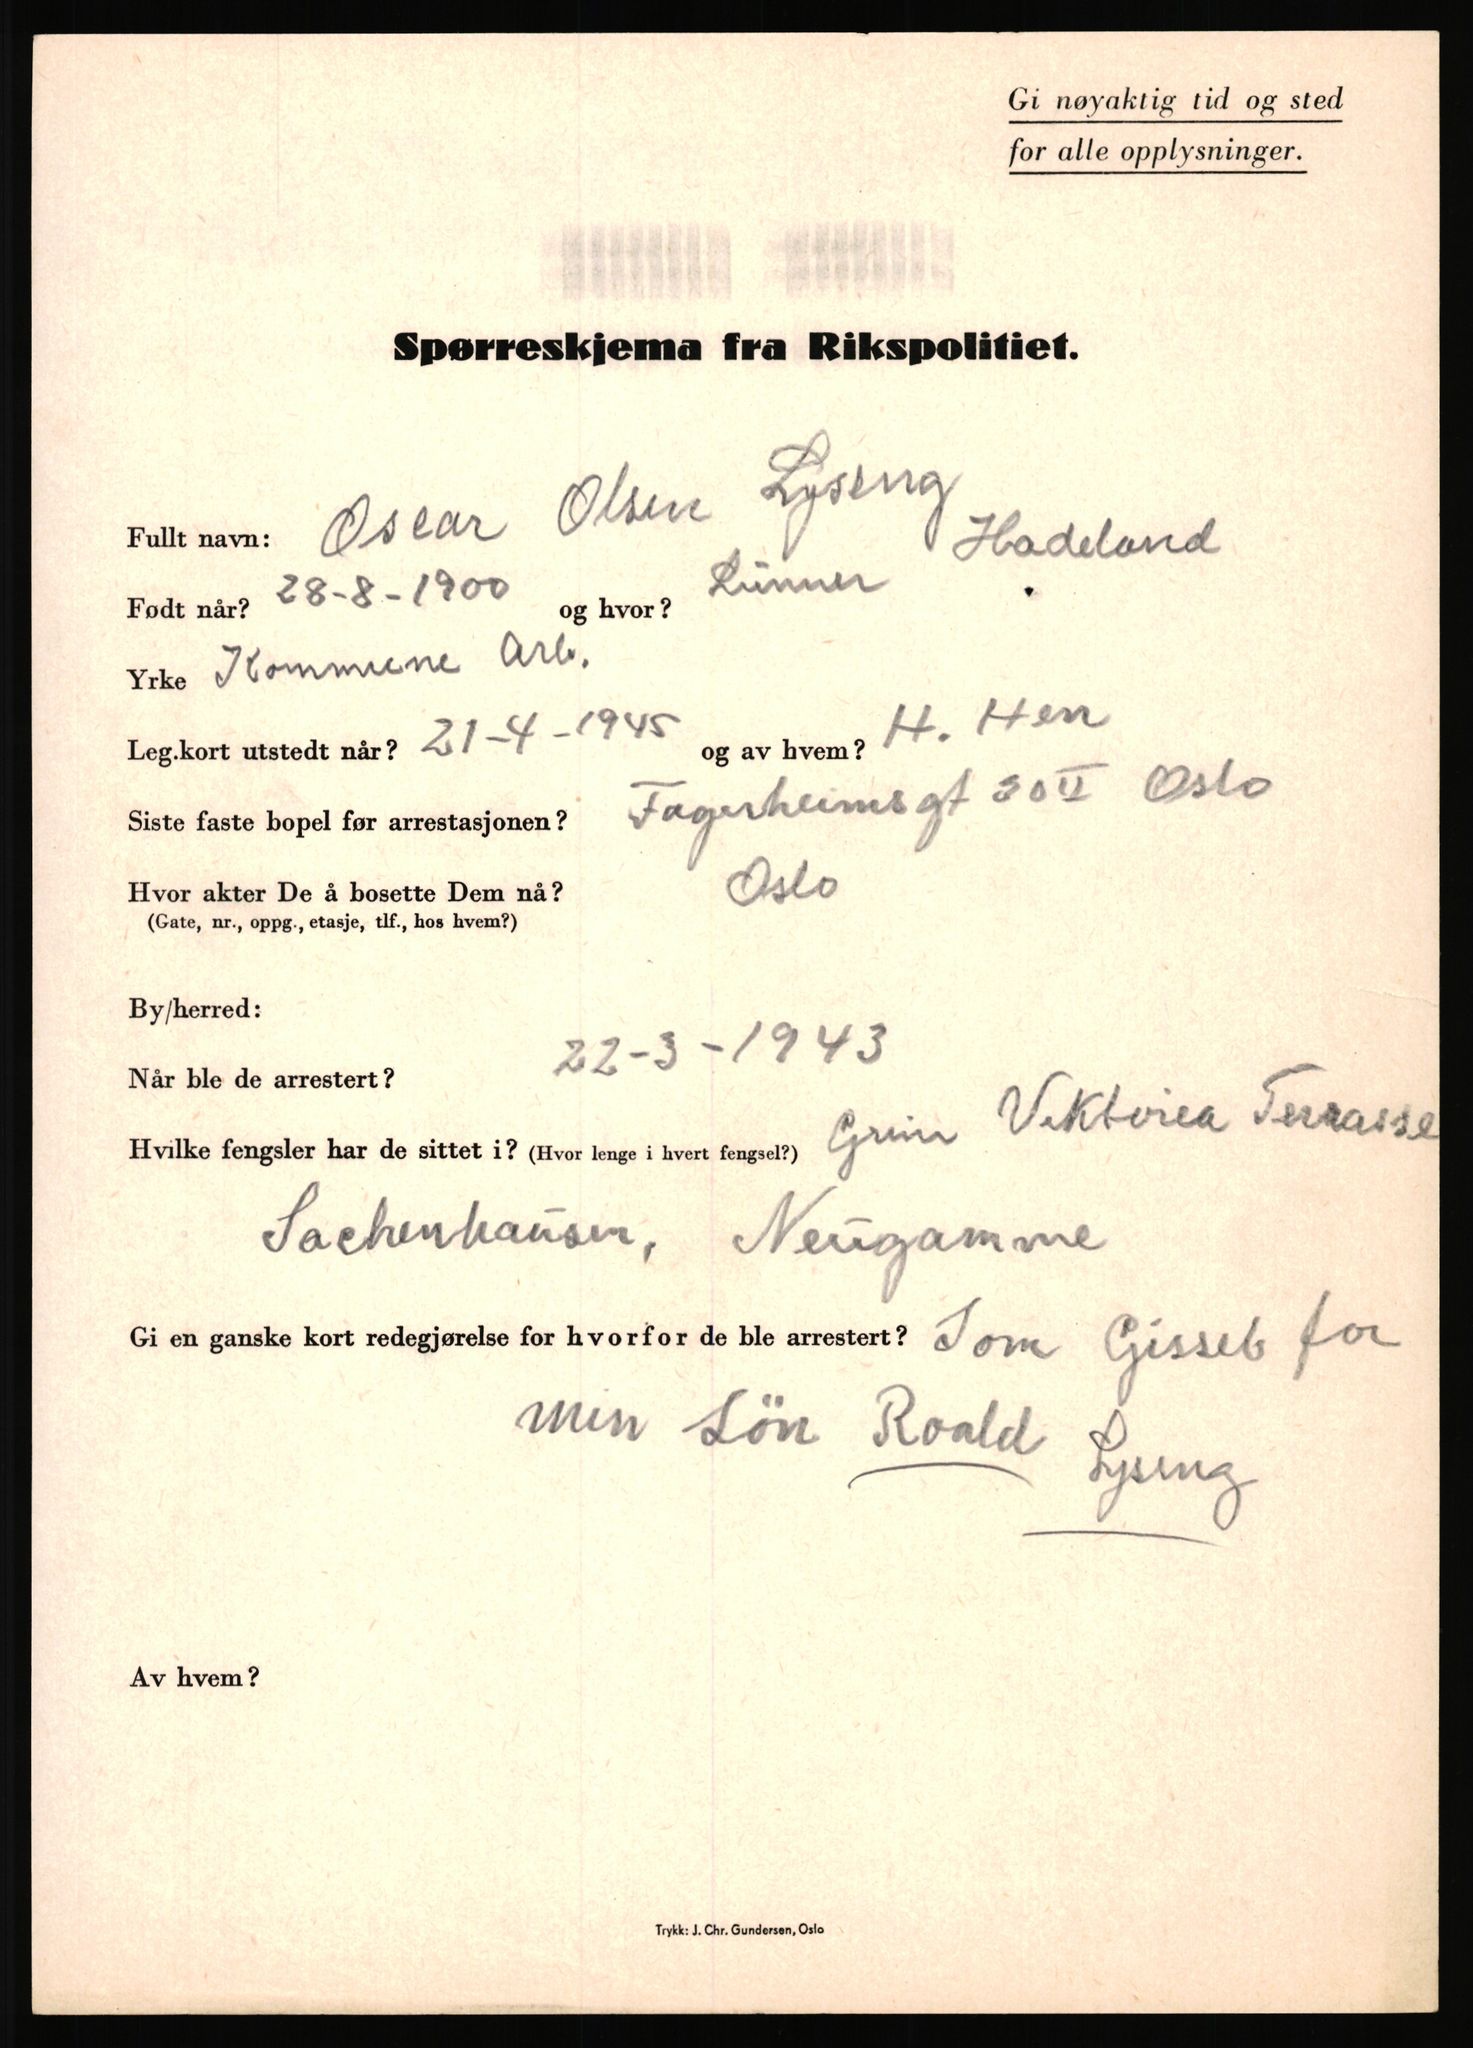 Gi nøyaktig tid og sted
for alle opplysninger.
Spørreskjema fra Rikspolitiet.
Fullt navn: Oscar Olsen Lyseng
Født når? 28-8-1900 og hvor? Lünner Hadeland
Yrke Kommune Arb.
Leg.kort utstedt når? 21-4-1945 og av hvem? H. Hen
Siste faste bopel før arrestasjonen? Fagerheimsgt 30 II Oslo
Hvor akter De å bosette Dem nå? Oslo
(Gate, nr., oppg., etasje, tlf., hos hvem?)
By/herred:
Når ble de arrestert? 22-3-1943
Hvilke fengsler har de sittet i? (Hvor lenge i hvert fengsel?) Grini Viktoria Terrasse
Sachenhausen, Neugamme
Gi en ganske kort redegjørelse for hvorfor de ble arrestert? Som Gissel for
min Sön Roald Lyseng
Av hvem?
Trykk: J. Chr. Gundersen, Oslo